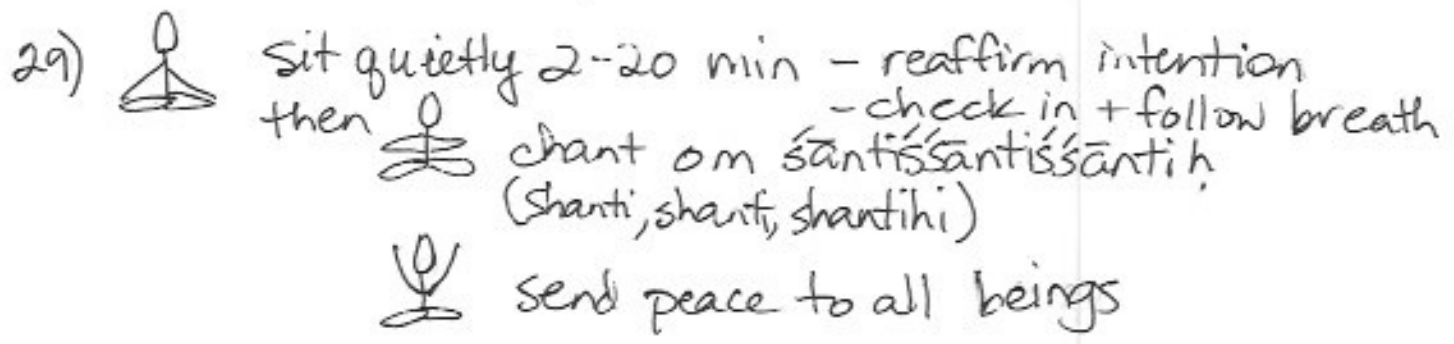 29) Sit quietly 2-20 min - reaffirm intention
then - check in + follow breath
chant om śāntiśśāntiśśāntiḥ
(Shanti, shanti, shantihi)
send peace to all beings